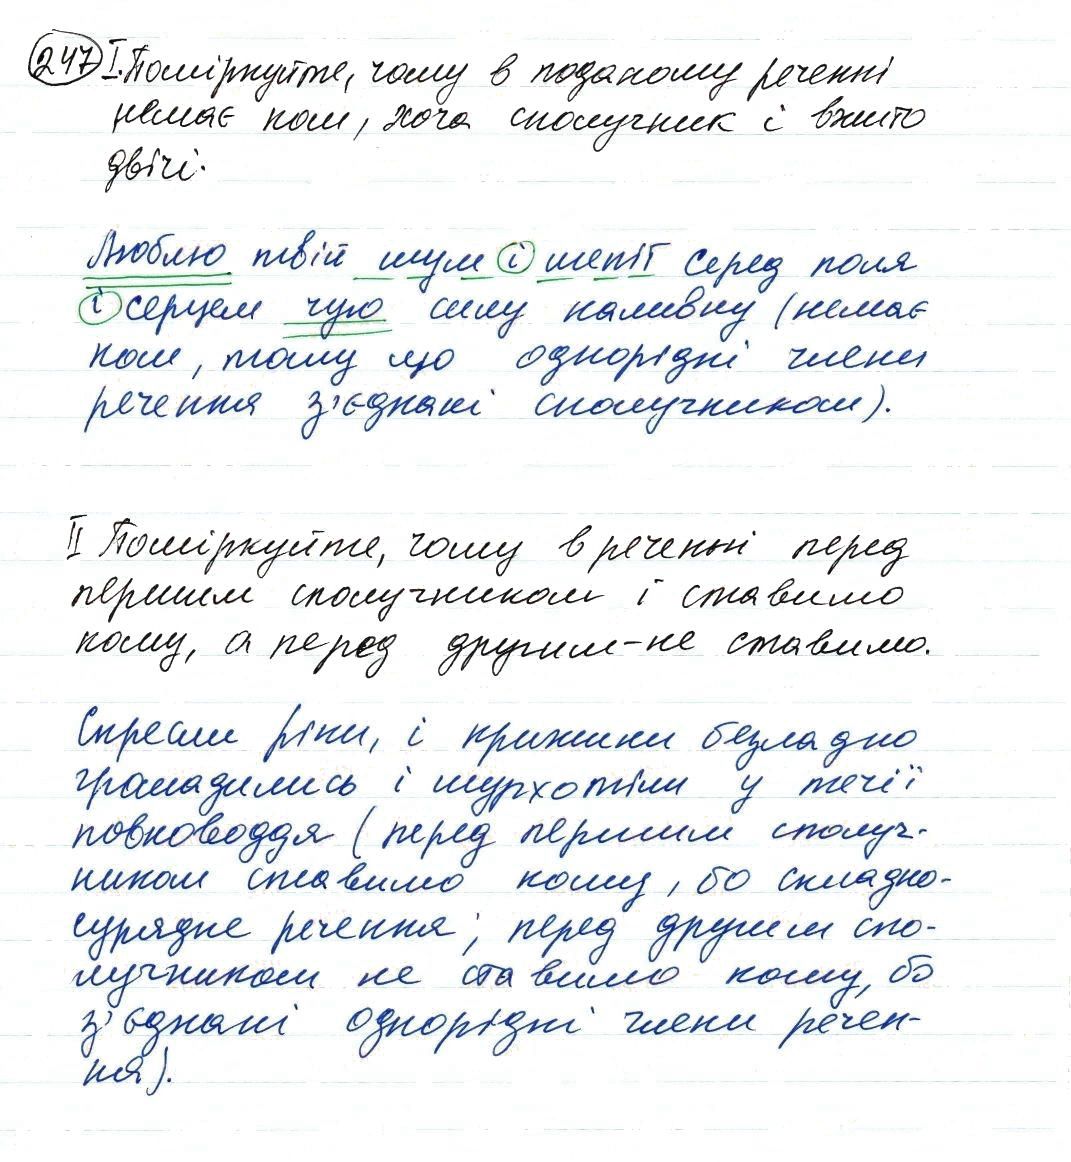 247 I. Поміркуйте, чому в поданому реченні
немає ком, хоча сполучник і вжито
двічі.
Люблю твій шум і шепіт серед поля
і серцем чую силу наливну (немає
ком, тому що однорідні члени
речення з'єднані сполучником).
II Поміркуйте, чому в реченні перед
першим сполучником і ставимо
кому, а перед другим - не ставимо.
Скресли ріки, і крижини безладно
громадились і шурхотіли у течії
повноводдя (перед першим сполуч-
ником ставимо кому, бо складно-
сурядне речення; перед другим спо-
лучником не ставимо кому, бо
з'єднані однорідні члени речен-
ня).